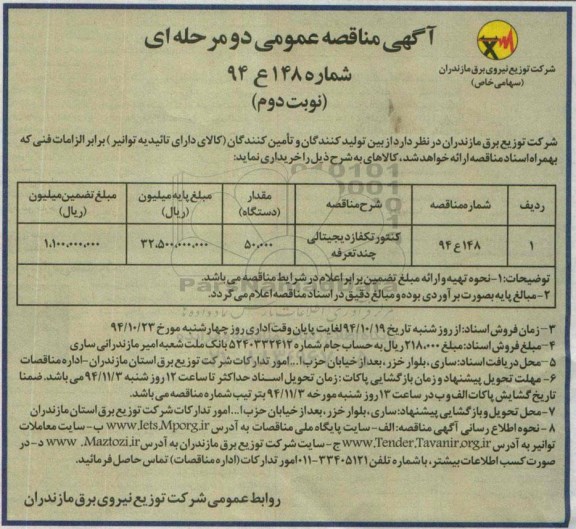 آگهی مناقصه عمومی دو مرحله ای
شماره ۱۴۸ ع ۹۴
(نوبت دوم)
شرکت توزیع نیروی برق مازندران
(سهامی خاص)
شرکت توزیع برق مازندران در نظر دارد از بین تولید کنندگان و تأمین کنندگان (کالای دارای تائیدیه توانیر) برابر الزامات فنی که
بهمراه اسناد مناقصه ارائه خواهد شد، کالاهای به شرح ذیل را خریداری نماید:
ردیف شماره مناقصه شرح مناقصه مقدار (دستگاه) مبلغ پایه میلیون (ریال) مبلغ تضمین میلیون (ریال)
۱ ۱۴۸ ع ۹۴ کنتور تکفاز دیجیتالی چند تعرفه ۵۰,۰۰۰ ۳۲,۵۰۰,۰۰۰,۰۰۰ ۱,۱۰۰,۰۰۰,۰۰۰
توضیحات: ۱- نحوه تهیه و ارائه مبلغ تضمین برابر اعلام در شرایط مناقصه می باشد.
۲- مبالغ پایه بصورت برآوردی بوده و مبالغ دقیق در اسناد مناقصه اعلام می گردد.
۳- زمان فروش اسناد: از روز شنبه تاریخ ۹۴/۱۰/۱۹ لغایت پایان وقت اداری روز چهارشنبه مورخ ۹۴/۱۰/۲۳
۴- مبلغ فروش اسناد: مبلغ ۲۱۸,۰۰۰ ریال به حساب جام شماره ۵۲۴۰۳۳۲۴۱۲ بانک ملت شعبه امیر مازندرانی ساری
۵- محل دریافت اسناد: ساری، بلوار خزر، بعد از خیابان حزب ا... امور تدارکات شرکت توزیع برق استان مازندران-اداره مناقصات
۶- مهلت تحویل پیشنهاد و زمان بازگشایی پاکات: زمان تحویل اسناد حداکثر تا ساعت ۱۲ روز شنبه ۹۴/۱۱/۳ می باشد. ضمنا
تاریخ گشایش پاکات الف و ب در ساعت ۱۳ روز شنبه مورخه ۹۴/۱۱/۳ بترتیب شماره مناقصه می باشد.
۷- محل تحویل و بازگشایی پیشنهاد: ساری، بلوار خزر، بعد از خیابان حزب ا... امور تدارکات شرکت توزیع برق استان مازندران
۸- نحوه اطلاع رسانی آگهی مناقصه: الف-سایت پایگاه ملی مناقصات به آدرس www.Iets.Mporg.ir ب-سایت معاملات
توانیر به آدرس www.Tender.Tavanir.org.ir ج-سایت شرکت توزیع برق مازندران به آدرس www. Maztozi.ir د-در
صورت کسب اطلاعات بیشتر، با شماره تلفن ۳۳۴۰۵۱۲۱-۰۱۱ امور تدارکات (اداره مناقصات) تماس حاصل فرمائید.
روابط عمومی شرکت توزیع نیروی برق مازندران